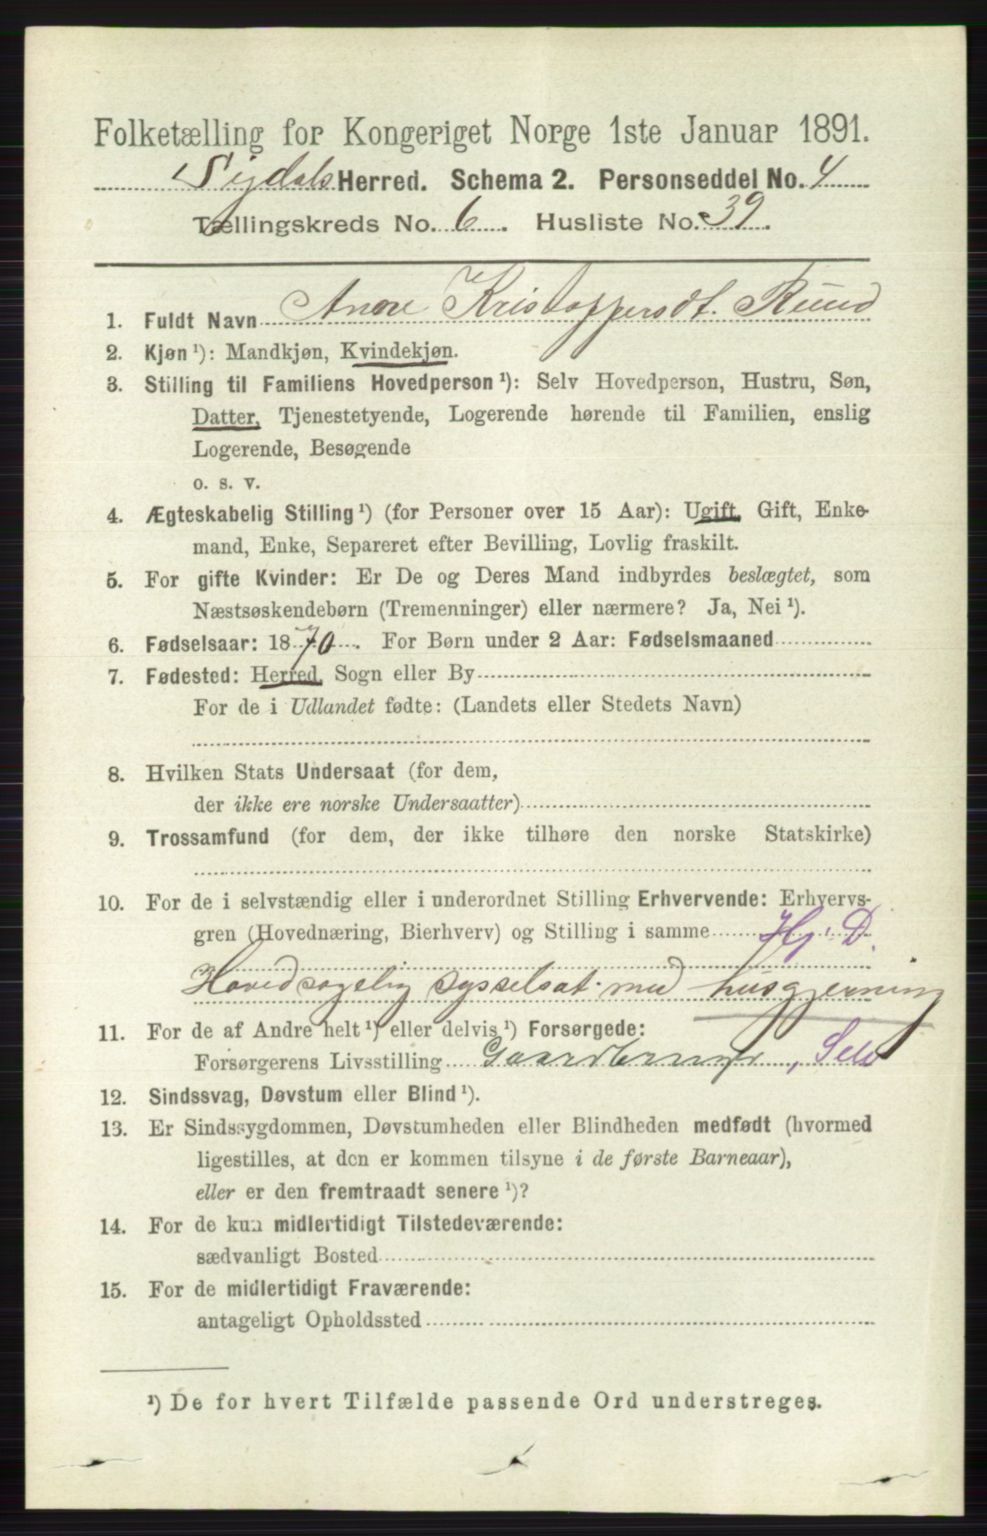 Folketælling for Kongeriget Norge 1ste Januar 1891.
Sigdals Herred. Schema 2. Personseddel No. 4
Tællingskreds No. 6. Husliste No. 39.
1. Fuldt Navn Kristoffersdt. Ruud
2. Kjøn ¹): Mandkjøn, Kvindekjøn.
3. Stilling til Familiens Hovedperson ¹): Selv Hovedperson, Hustru, Søn,
Datter, Tjenestetyende, Logerende hørende til Familien, enslig
Logerende, Besøgende
o. s. v.
4. Ægteskabelig Stilling ¹) (for Personer over 15 Aar): Ugift, Gift, Enke-
mand, Enke, Separeret efter Bevilling, Lovlig fraskilt.
5. For gifte Kvinder: Er De og Deres Mand indbyrdes beslægtet, som
Næstsøskendebørn (Tremenninger) eller nærmere? Ja, Nei ¹).
6. Fødselsaar: 1870. For Børn under 2 Aar: Fødselsmaaned
7. Fødested: Herred, Sogn eller By
For de i Udlandet fødte: (Landets eller Stedets Navn)
8. Hvilken Stats Undersaat (for dem,
der ikke ere norske Undersaatter)
9. Trossamfund (for dem, der ikke tilhøre den norske Statskirke)
10. For de i selvstændig eller i underordnet Stilling Erhvervende: Erhvervs-
gren (Hovednæring, Bierhverv) og Stilling i samme Hj. D.
Hovedsagelig sysselsat med husgjerning
11. For de af Andre helt ¹) eller delvis ¹) Forsørgede:
Forsørgerens Livsstilling Gaardbruger, Selv
12. Sindssvag, Døvstum eller Blind ¹).
13. Er Sindssygdommen, Døvstumheden eller Blindheden medfødt (hvormed
ligestilles, at den er kommen tilsyne i de første Barneaar),
eller er den fremtraadt senere ¹)?
14. For de kun midlertidigt Tilstedeværende:
sædvanligt Bosted
15. For de midlertidigt Fraværende:
antageligt Opholdssted
¹) De for hvert Tilfælde passende Ord understreges.